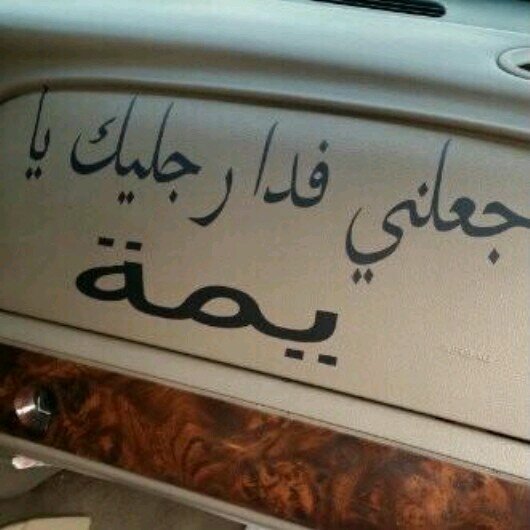 جعلني فدا رجليك يا
يمة